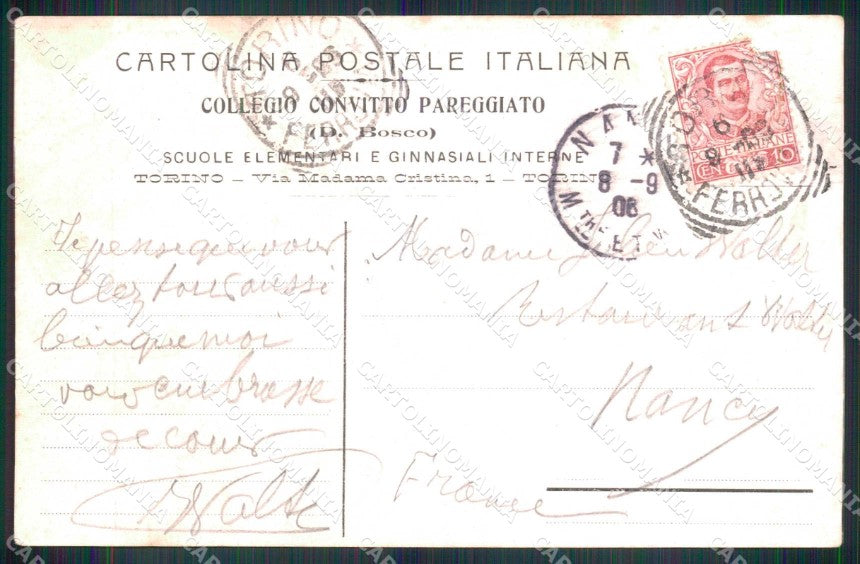 CARTOLINA POSTALE ITALIANA
COLLEGIO CONVITTO PAREGGIATO
(D. Bosco)
SCUOLE ELEMENTARI E GINNASIALI INTERNE
TORINO — Via Madama Cristina, 1 — TORINO
TORINO
FERROVIA
POSTE ITALIANE
CENT. 10
FERROVIA
NAN
7 *
8 - 9
06
Mthe ET M
Je pense que vous
allez tous aussi
bien que moi
vous embrasse
de cœur
Walter
Madame Walter
Restaurant Walter
Nancy
France
CARTOLINOMANIA